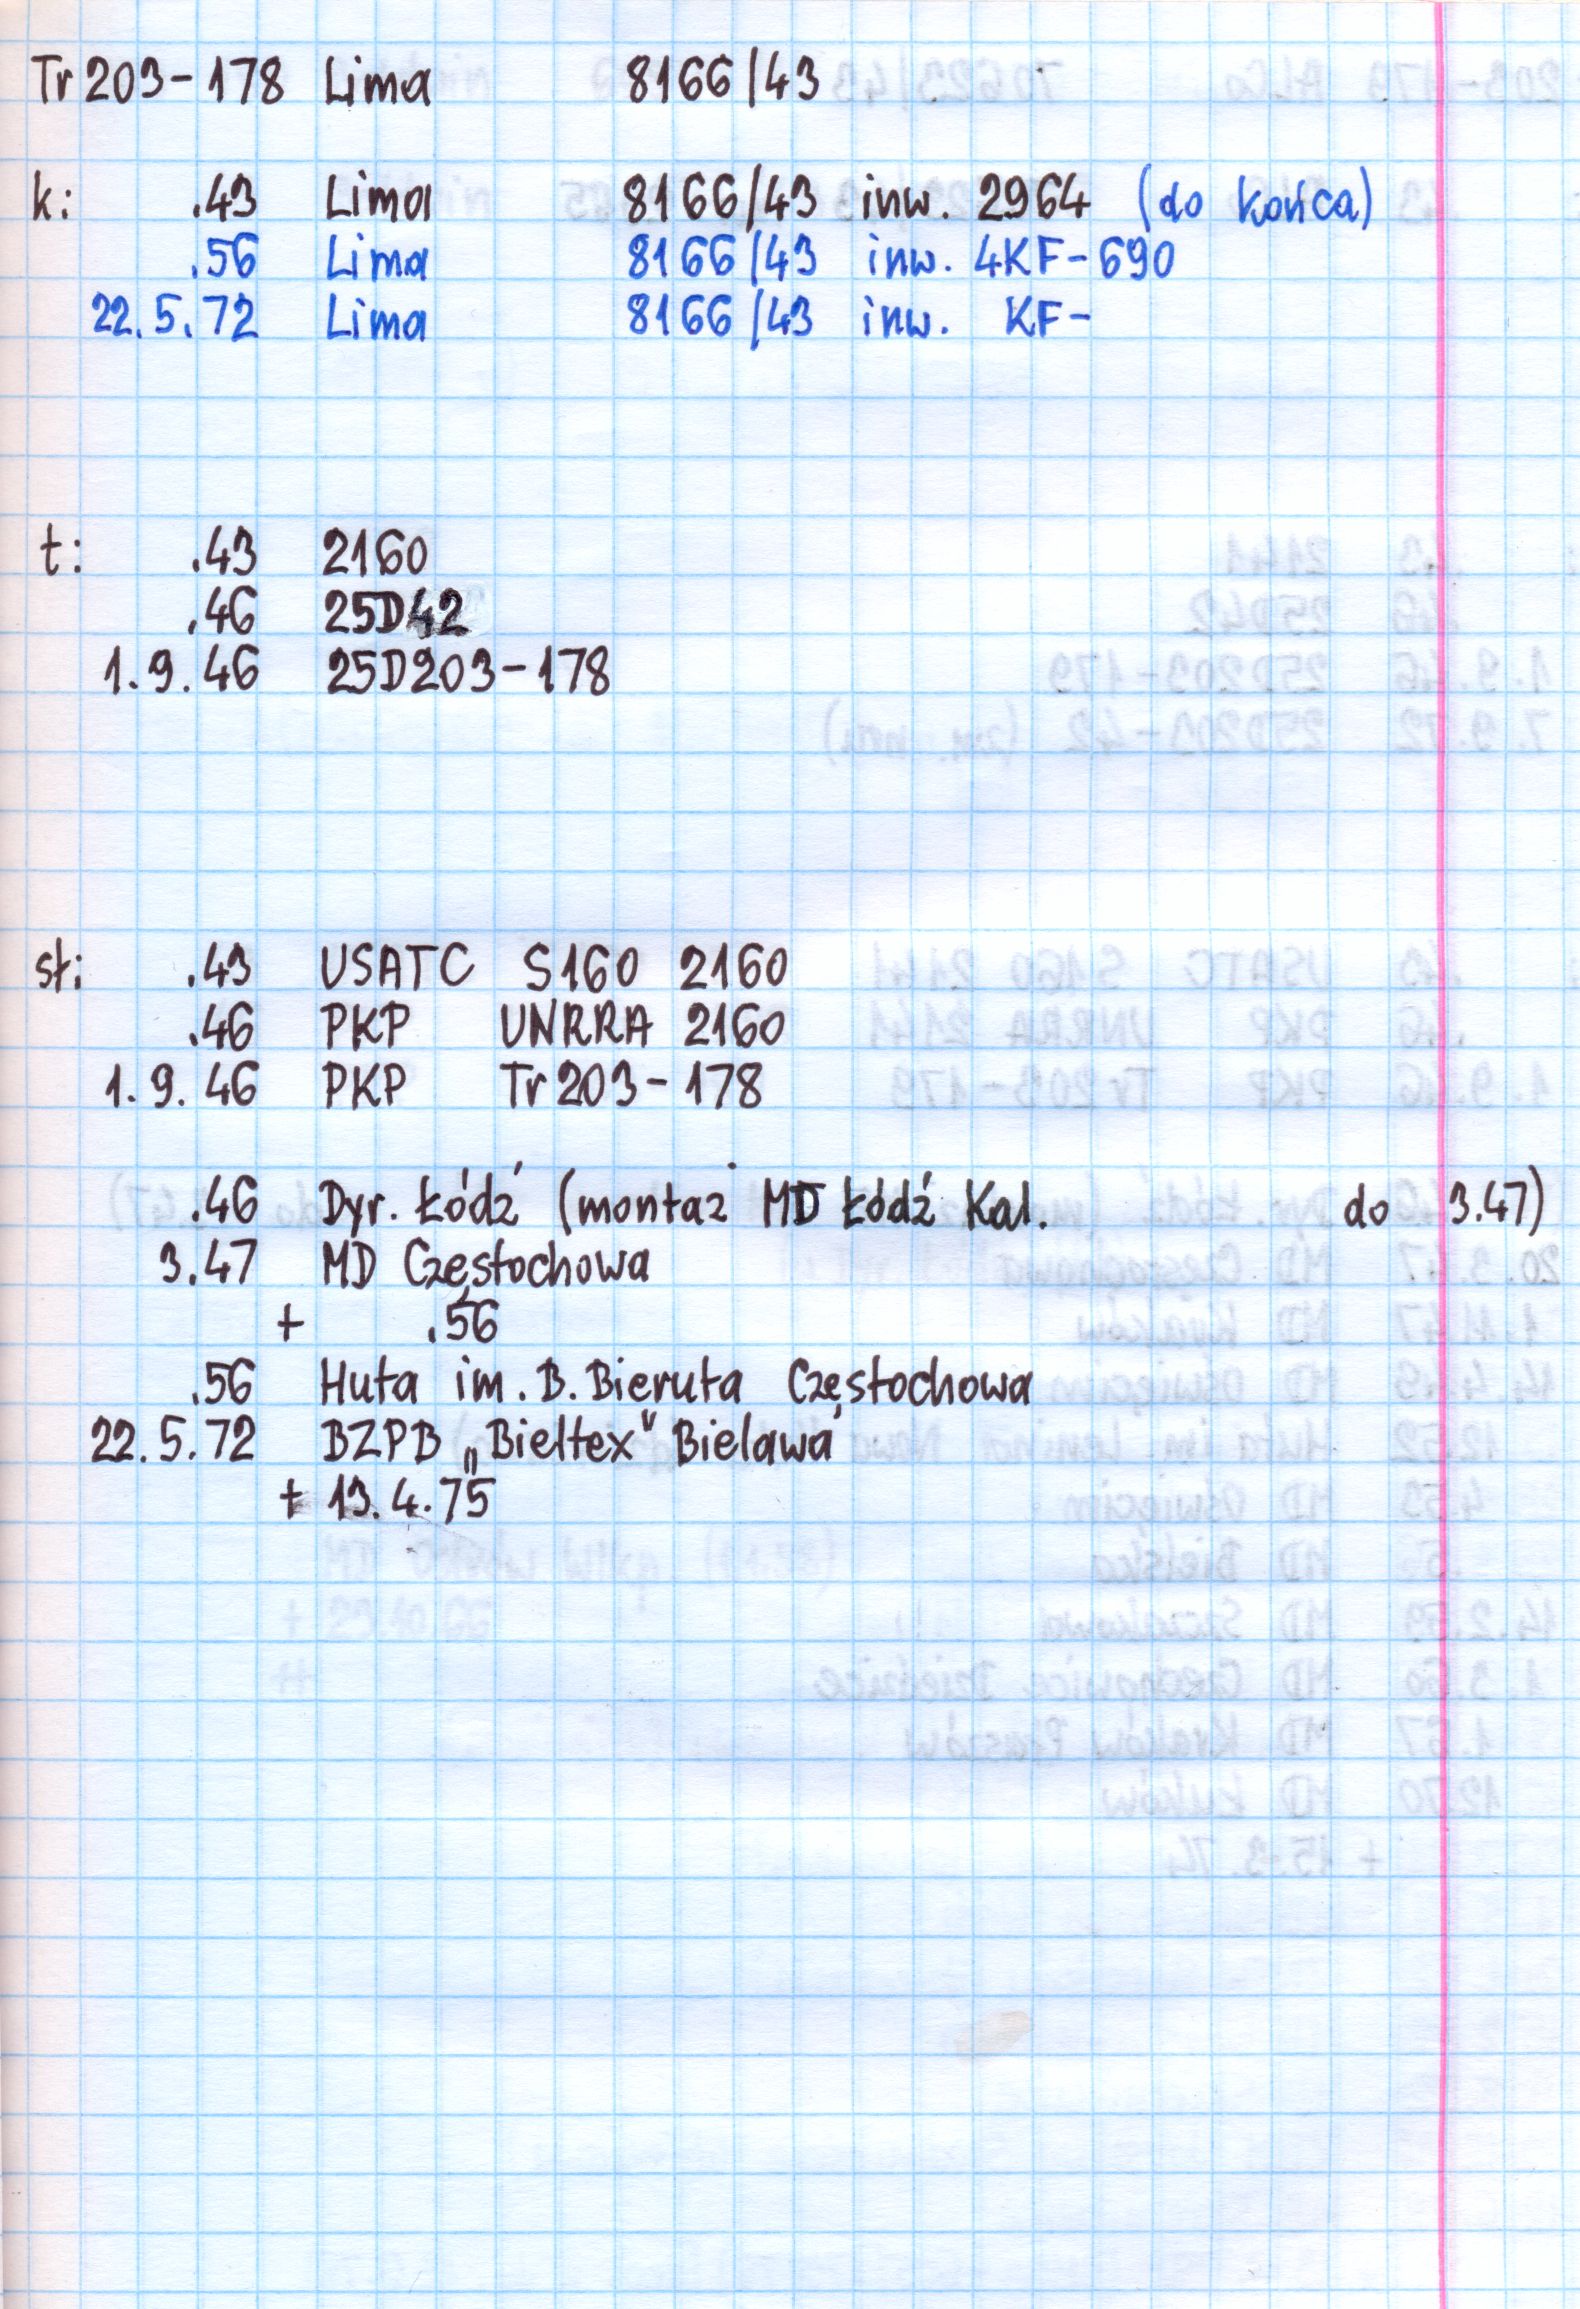 Tr 203-178 Lima 8166/43
k: .43 Lima 8166/43 inw. 2964 (do końca)
.56 Lima 8166/43 inw. 4KF-690
22.5.72 Lima 8166/43 inw. KF-
t: .43 2160
.46 25D42
1.9.46 25D203-178
sł: .43 USATC S160 2160
.46 PKP UNRRA 2160
1.9.46 PKP Tr 203-178
.46 Dyr. Łódź (montaż MD Łódź Kal. do 3.47)
3.47 MD Częstochowa
+ .56
.56 Huta im. B. Bieruta Częstochowa
22.5.72 BZPB „Bieltex" Bielawa
+ 13.4.75